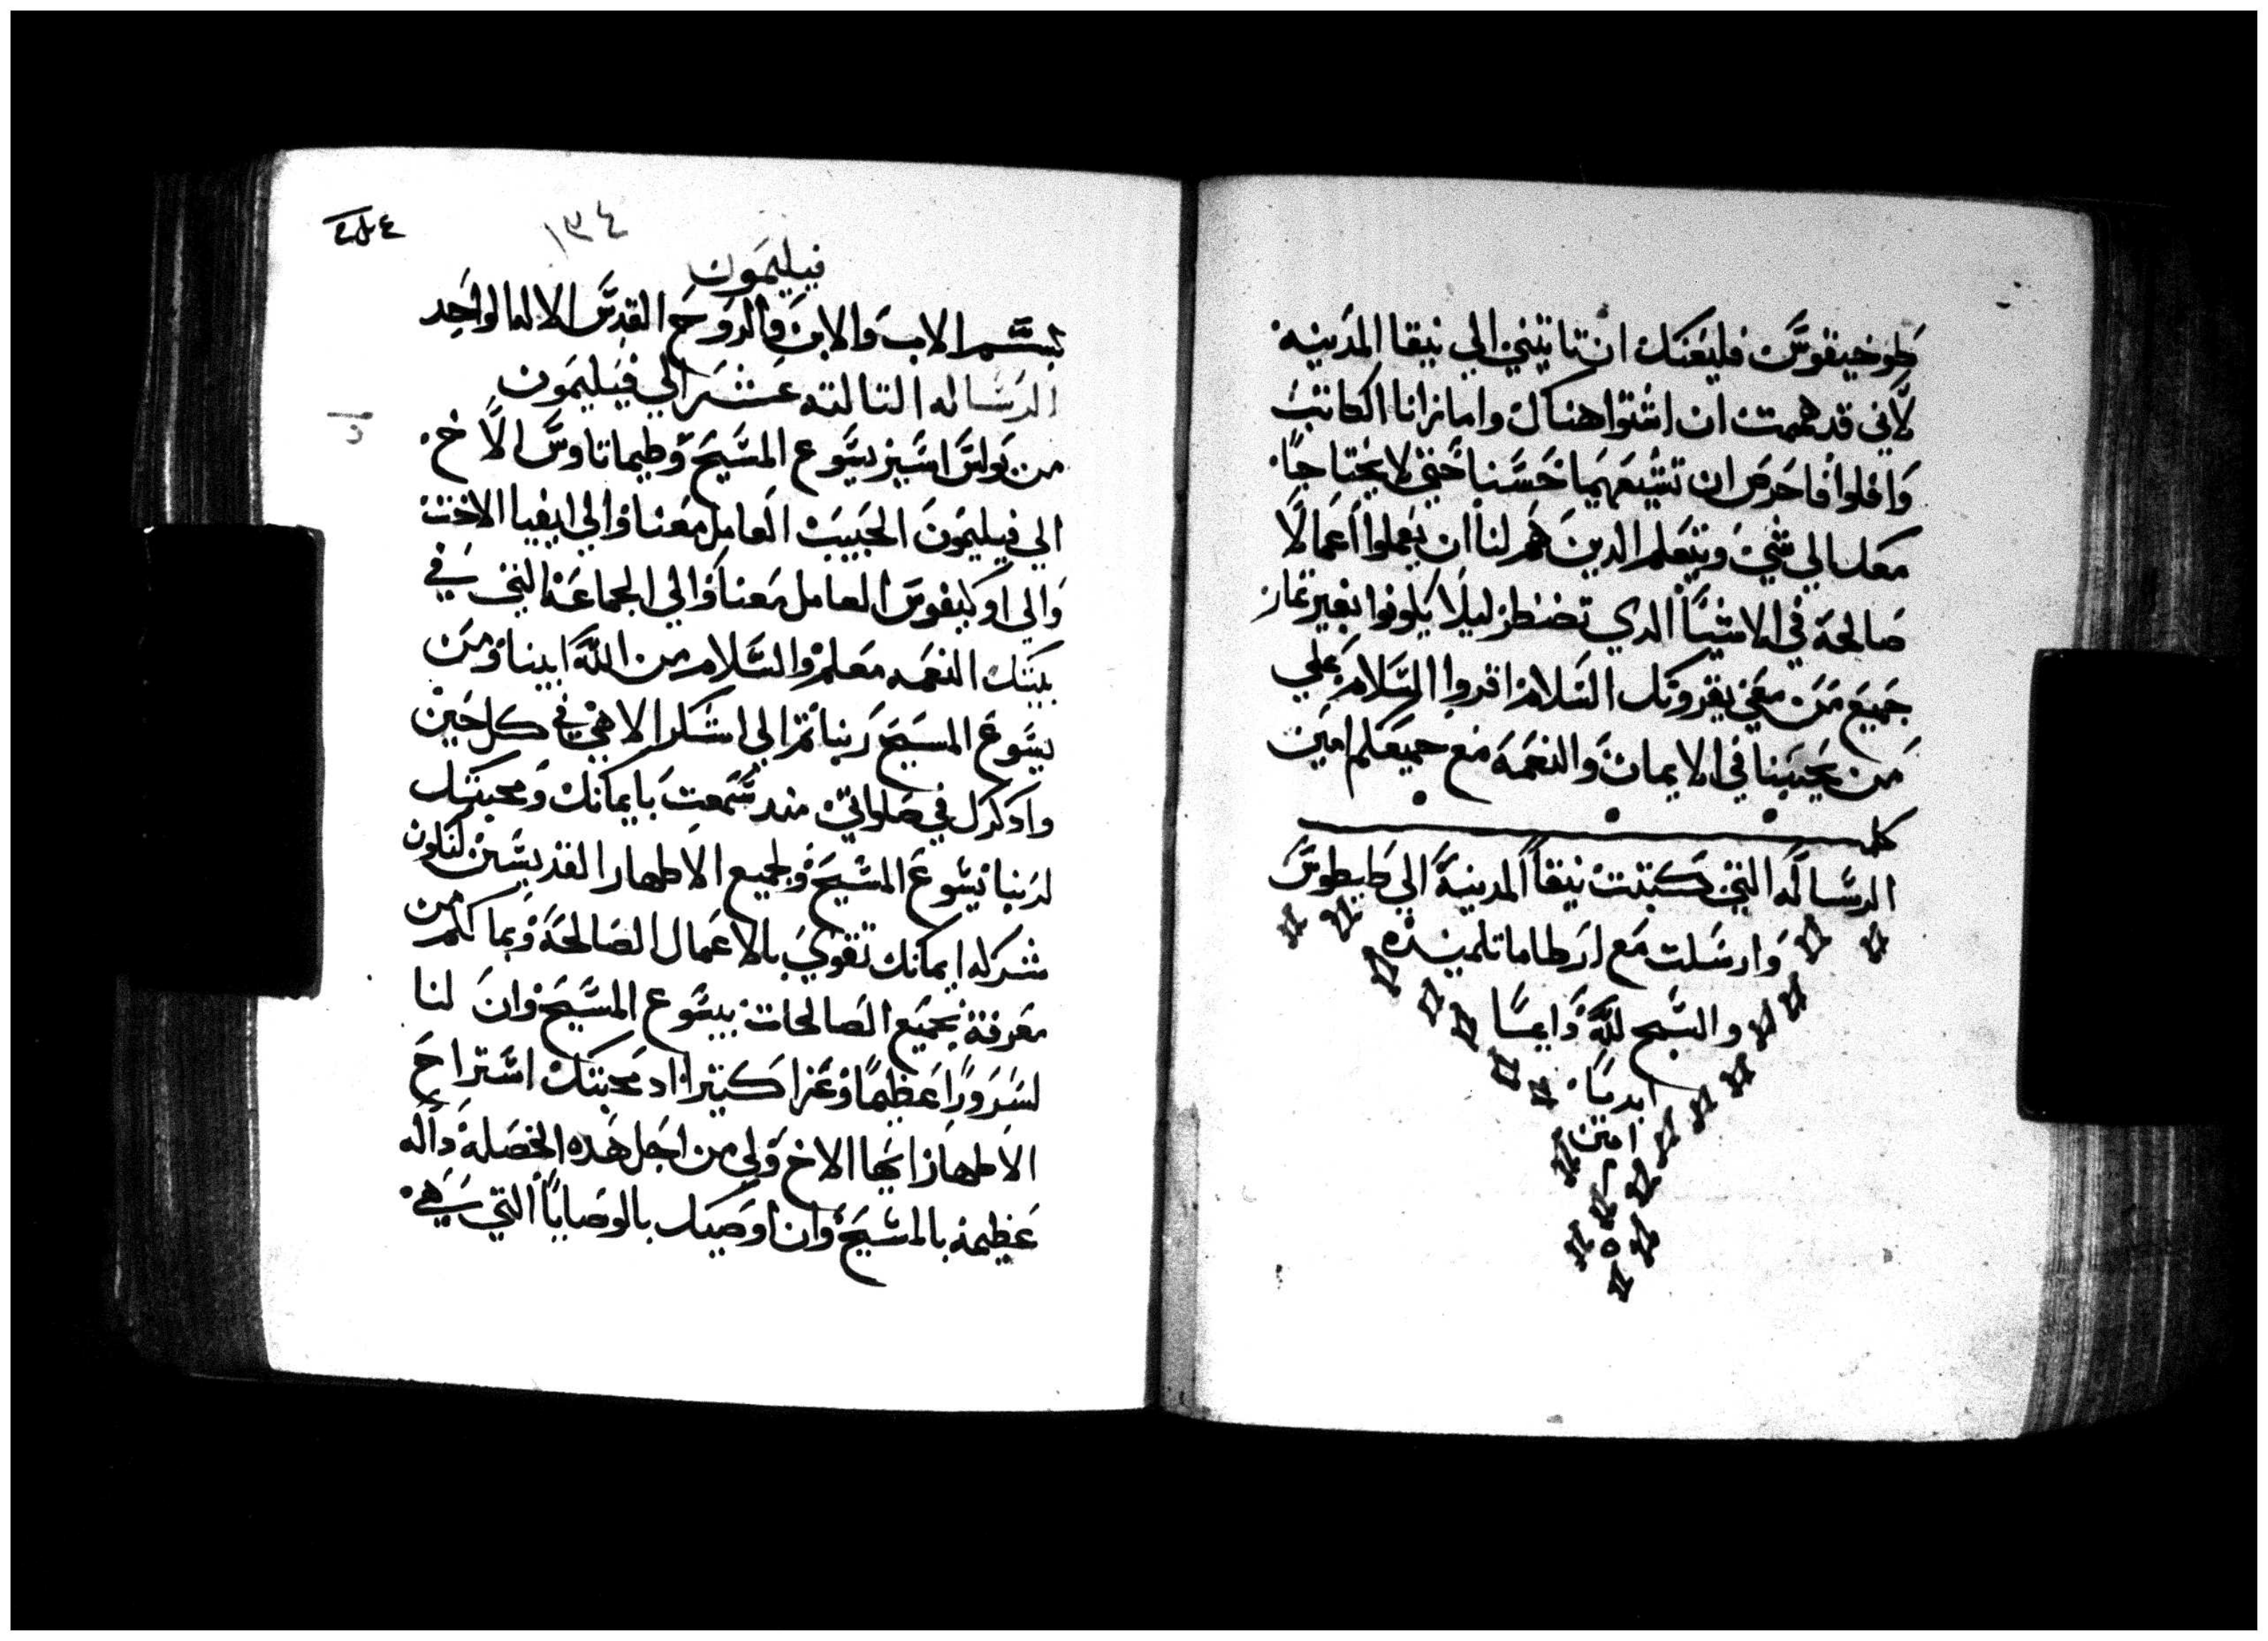 طوخيقوس فليعنك ان تاتيني الي نيقا المدينه
لاني قد هممت ان اشتوا هناك واما زانا الكاتب
وافلوا فاحرص ان تشيعهما حسنا حتي لا يحتاجا
معك الي شي ويتعلم الدين هم لنا ان يعملوا اعمالا
صالحة في الاشيا الدي تضطر ليلا يكونوا بغير تمار
جميع من معي يقروتك السلام اقروا السلام علي
من يحبنا في الايمان والنعمه مع جميعكم امين
كل
الرساله التي كتبت نيقا المدينة الي طيطوس
وارسلت مع ارطاما تلميذه
والسبح لله دايما
ابديا
امين
١٣٤
فيليمون
بسم الاب والابن والروح القدس الاله الواحد
الرساله التالته عشر الي فيليمون
من بولس اسير يسوع المسيح وطيماتاوس الاخ
الي فيليمون الحبيب العامل معنا والي ابفيا الاخت
والي اوكيفوس العامل معنا والي الجماعة التي في
بيتك النعمه معكم والسلام من الله ابينا ومن
يسوع المسيح ربنا تم الي اشكر الاهي في كل حين
وادكرك في صلواتي مند سمعت بايمانك ومحبتك
لربنا يسوع المسيح ولجميع الاطهار القديسين لتكون
شركه ايمانك تقوي بالاعمال الصالحة وبما لكم من
معرفة بجميع الصالحات بيسوع المسيح وان لنا
لسرورا عظيما وعزا كتيرا اد محبتك استراح
الاطهار ايها الاخ ولي من اجل هده الخصلة داله
عظيمة بالمسيح وان اوصيك بالوصايا التي هي